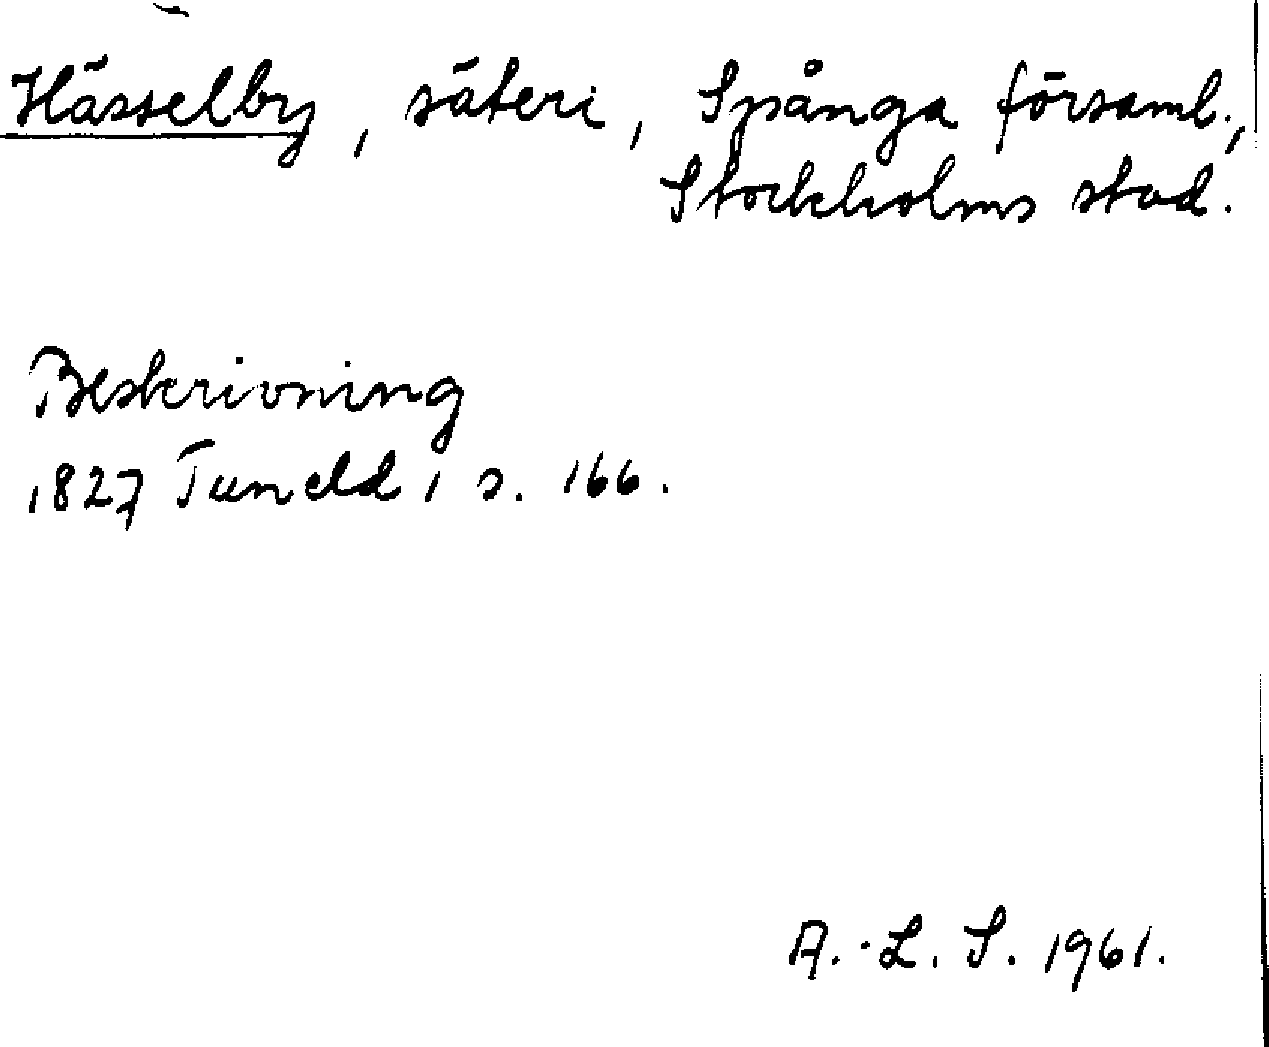 Hässelby, säteri, Spånga församl.,
Stockholms stad.
Beskrivning
1827 Tuneld 1 s. 166.
A.-L. S. 1961.